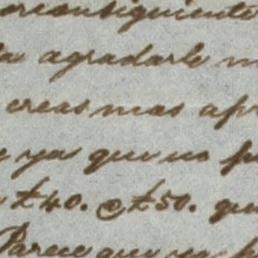 orconsiguiente
a agradarle m
creas mas ap
ya que no p
£40. @ £50. qu
Parece que ya